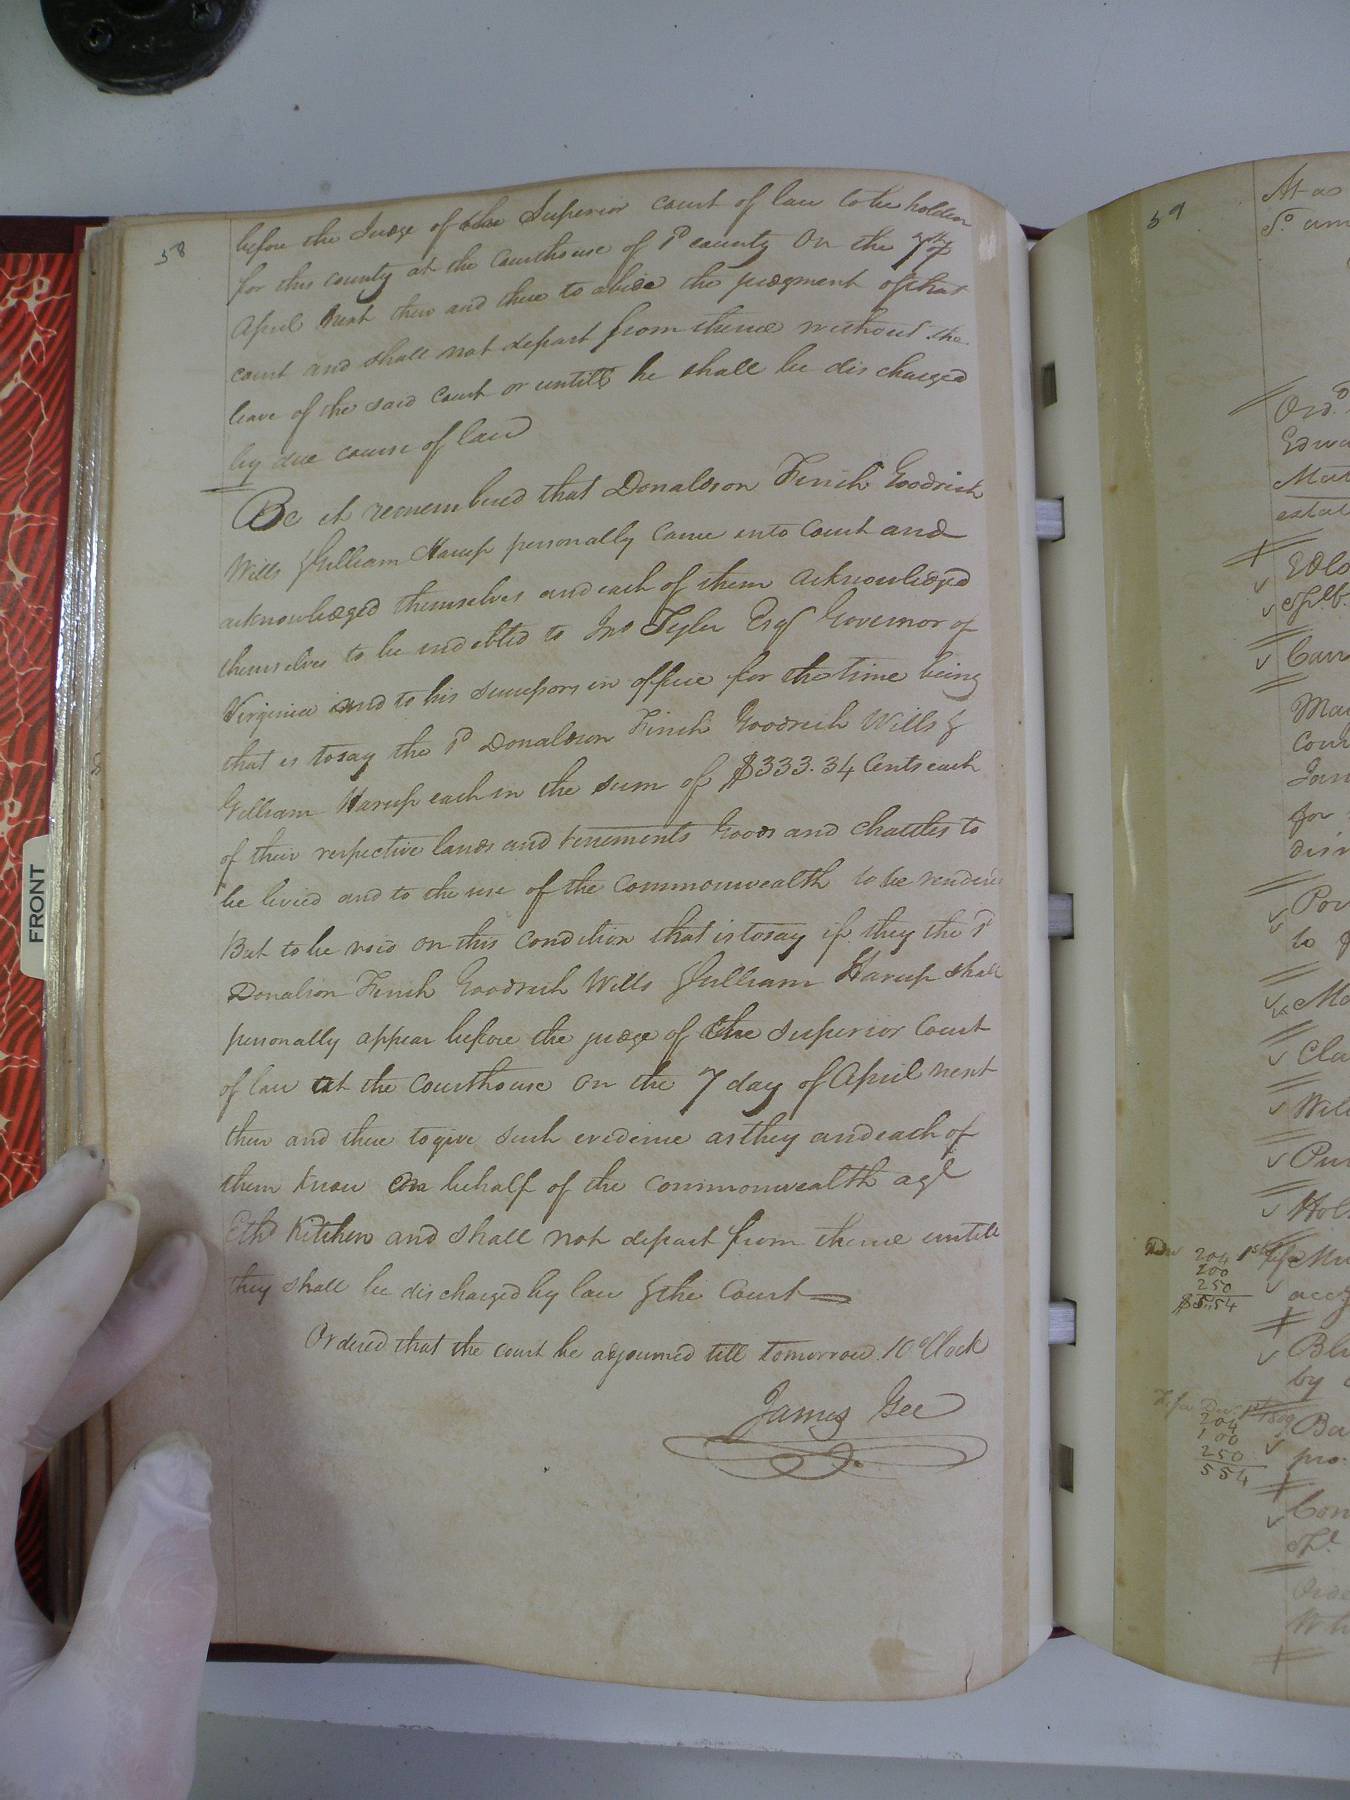 58
before the Judge of the Superior court of law to be holden
for this county at the Courthouse of sd county On the 7th
April next then and there to abide the judgment of that
court and shall not depart from thence without the
leave of the said Court or untill he shall be discharged
by due course of law
Be it remembered that Donaldson Finch Goodrich
Wills & William Harup personally came into Court and
acknowledged themselves and each of them acknowledged
themselves to be indebted to Jno Tyler Esqr Governor of
Virginia and to his successors in office for the time being
that is to say the sd Donaldson Finch Goodrich Wills &
William Harup each in the sum of $333.34 Cents each
of their respective lands and tenements Goods and Chattles to
be levied and to the use of the Commonwealth to be rendered
But to be void on this condition that is to say if they the sd
Donalson Finch Goodrich Wills & William Harup shall
personally appear before the judge of the Superior Court
of law at the Courthouse on the 7 day of April next
then and there to give such evidence as they and each of
them know on behalf of the Commonwealth agt
Ethd Kitchen and shall not depart from thence untill
they shall be discharged by law & the Court
Ordered that the court be adjourned till tomorrow 10 oClock
James Gee
FRONT
59
At a
Ord.
Edw
estat
Cour
for
Pov
to
Cla
Will
Hol
204
200
250
$554
by
204
100
250
554
pro.